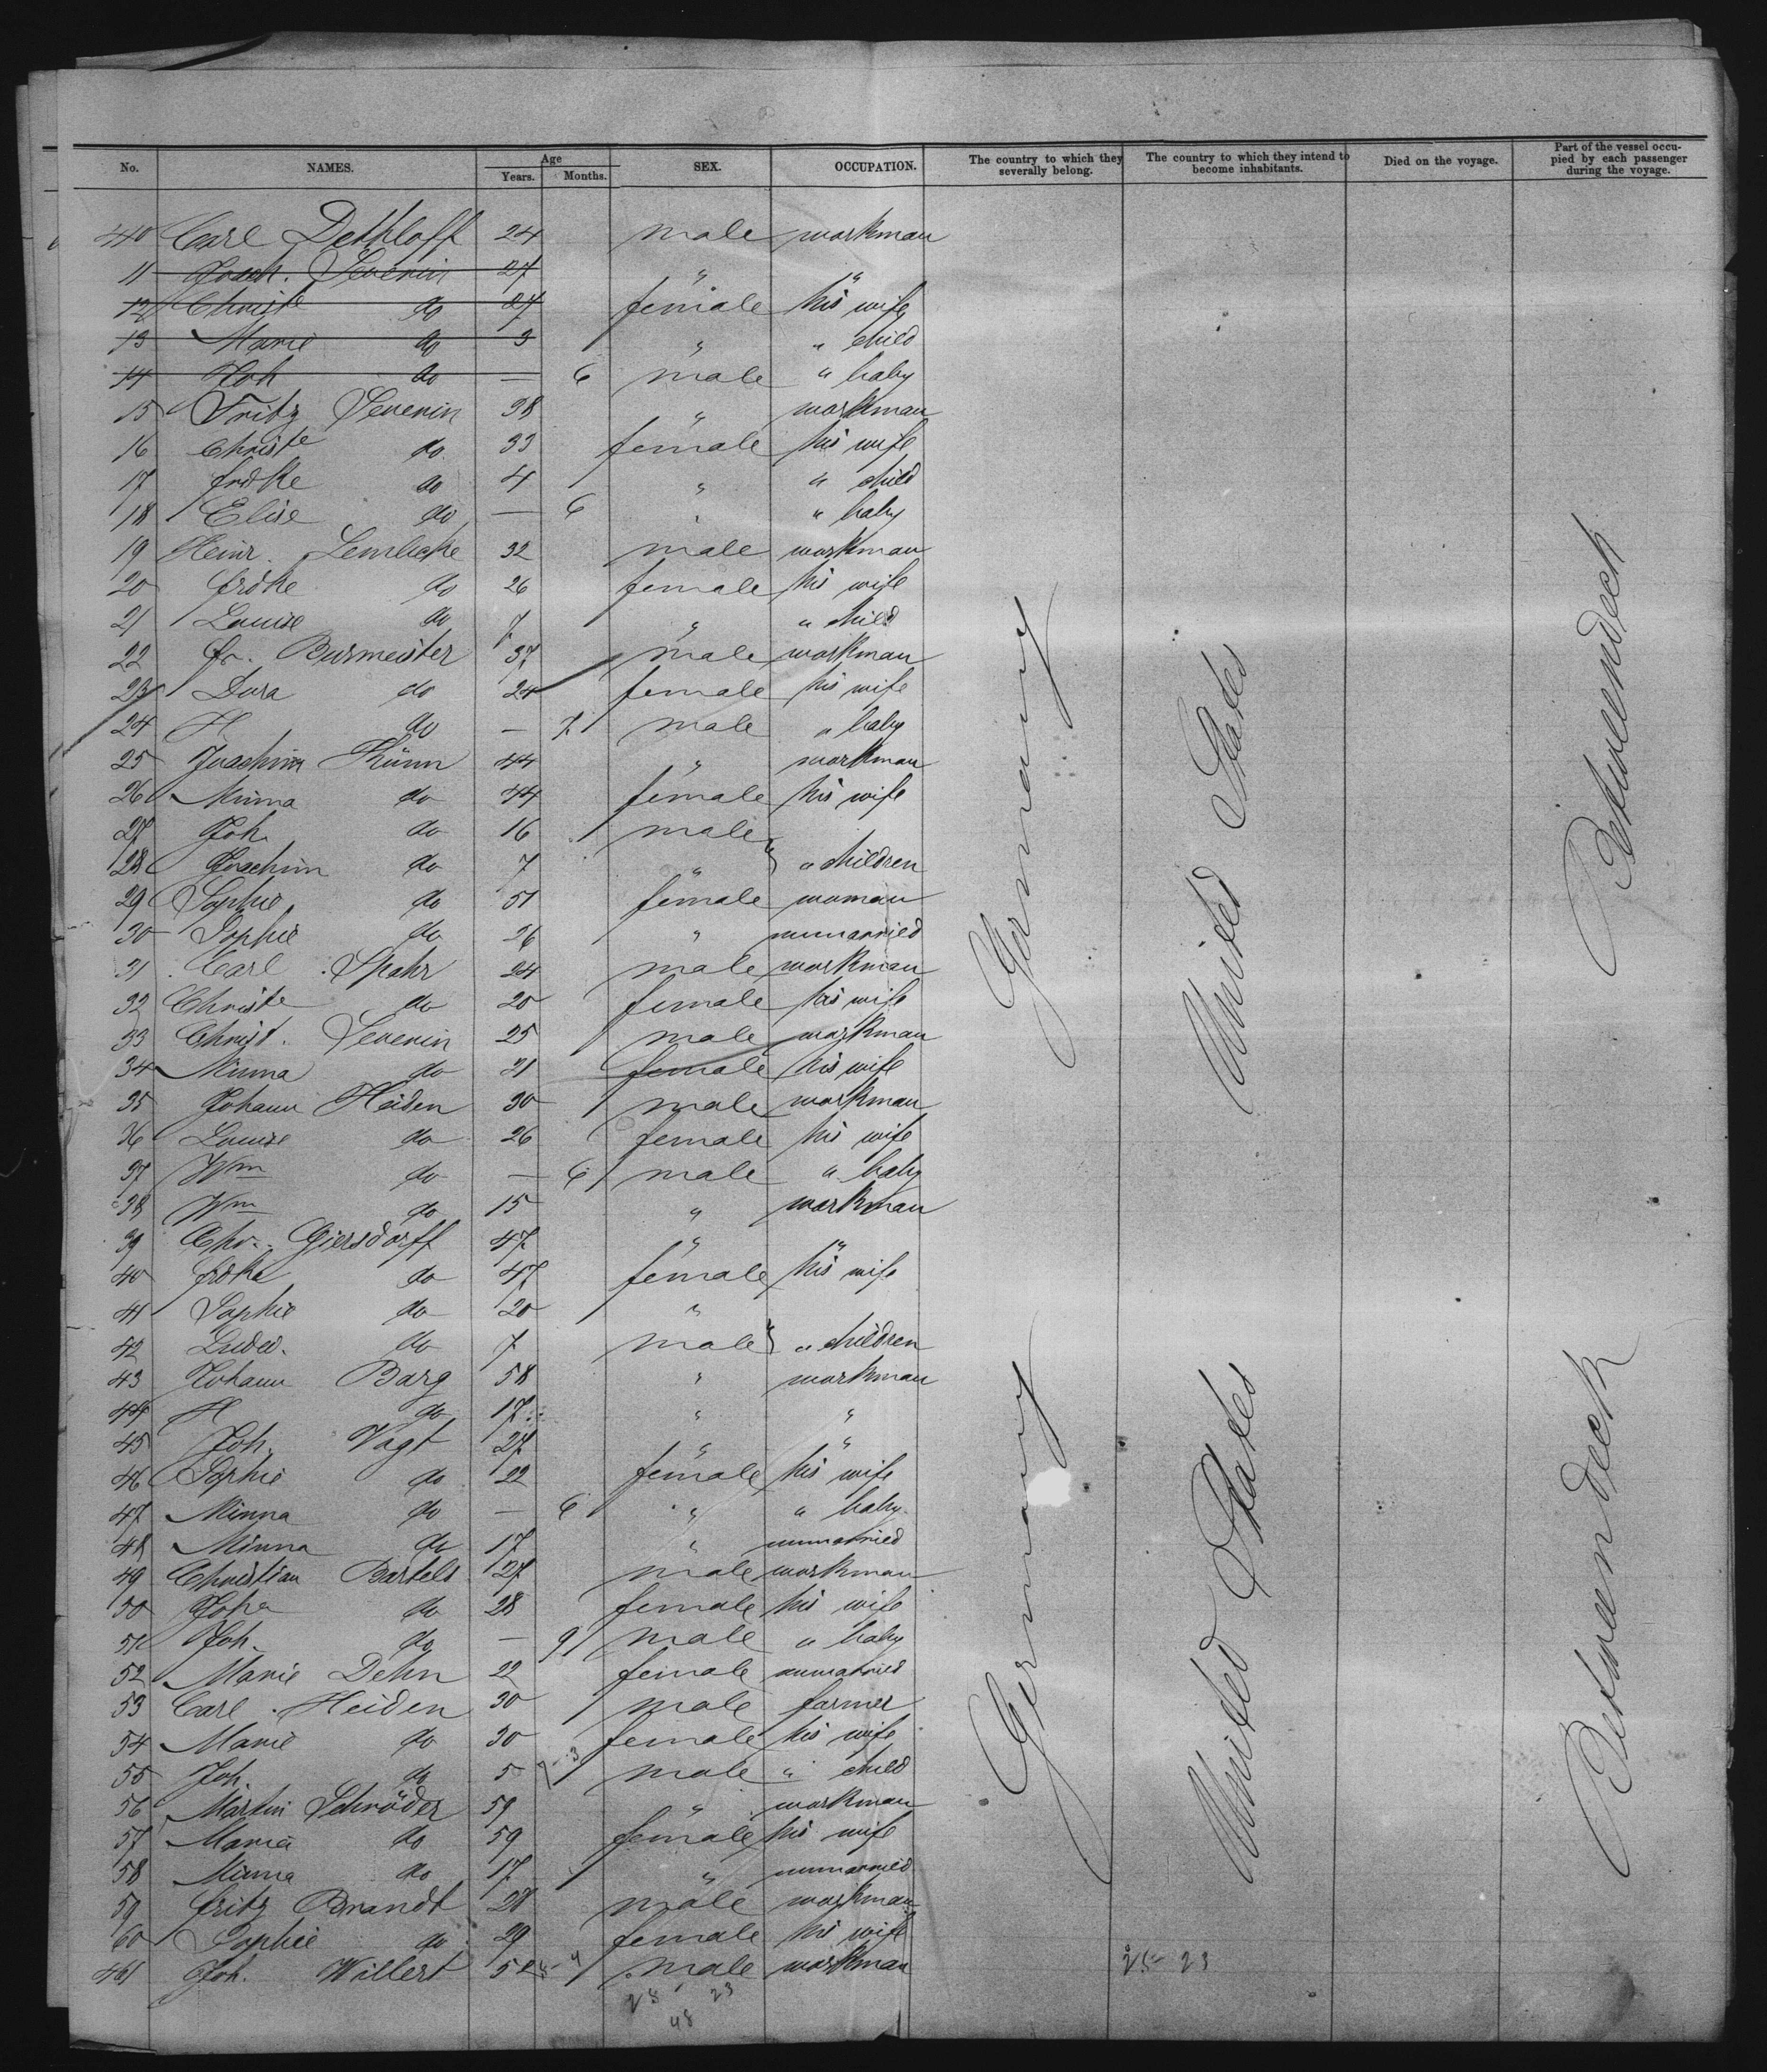 No. NAMES. Age Years. Months. SEX. OCCUPATION. The country to which they severally belong. The country to which they intend to become inhabitants. Died on the voyage. Part of the vessel occupied by each passenger during the voyage.
Carl Dethloff 24 male workman
11 Joach. Severin 27 " "
12 Christe do 27 female his wife
13 Marie do 3 " " child
14 Joh do — 6 male " baby
15 Fritz Severin 38 " workman
16 Christe do 33 female his wife
17 Frdke do 4 " " child
18 Elise do — 6 " " baby
19 Heinr. Lembcke 32 male workman
20 Frdke do 26 female his wife
21 Louise do 7 " " child
22 Fr. Burmeister 37 male workman
23 Dora do 24 female his wife
24 H do — 7 male " baby
25 Joachim Thünn 44 " workman
26 Minna do 44 female his wife
27 Joh. do 16 male
28 Joachim do 7 " " children
29 Sophie do 51 female woman
30 Sophie do 26 " unmarried
31 Carl Spahr 24 male workman
32 Christe do 20 female his wife
33 Christ. Severin 25 male workman
34 Minna do 21 female his wife
35 Johann Heiden 30 male workman
36 Louise do 26 female his wife
37 Wm do — 6 male " baby
38 Wm do 15 " workman
39 Chr. Giersdorff 47 " "
40 Frdke do 47 female his wife
41 Sophie do 20 "
42 Ludw. do 7 male " children
43 Johann Barg 58 " workman
44 H do 17 " "
45 Joh. Vagt 27 " "
46 Sophie do 22 female his wife
47 Minna do — 6 " " baby
48 Minna do 17 " unmarried
49 Christian Bartels 27 male workman
50 Joha do 28 female his wife
51 Joh. do — 9 male " baby
52 Marie Dehn 22 female unmarried
53 Carl Heiden 30 male farmer
54 Marie do 30 female his wife
55 Joh. do 5 male " child
56 Martin Schröder 59 " workman
57 Maria do 59 female his wife
58 Minna do 17 " unmarried
59 Fritz Brandt 28 male workman
60 Sophie do 29 female his wife
461 Joh. Willert male workman
25 23
48
25 23
Germany
United States
Betweendeck
Germany
United States
Betweendeck